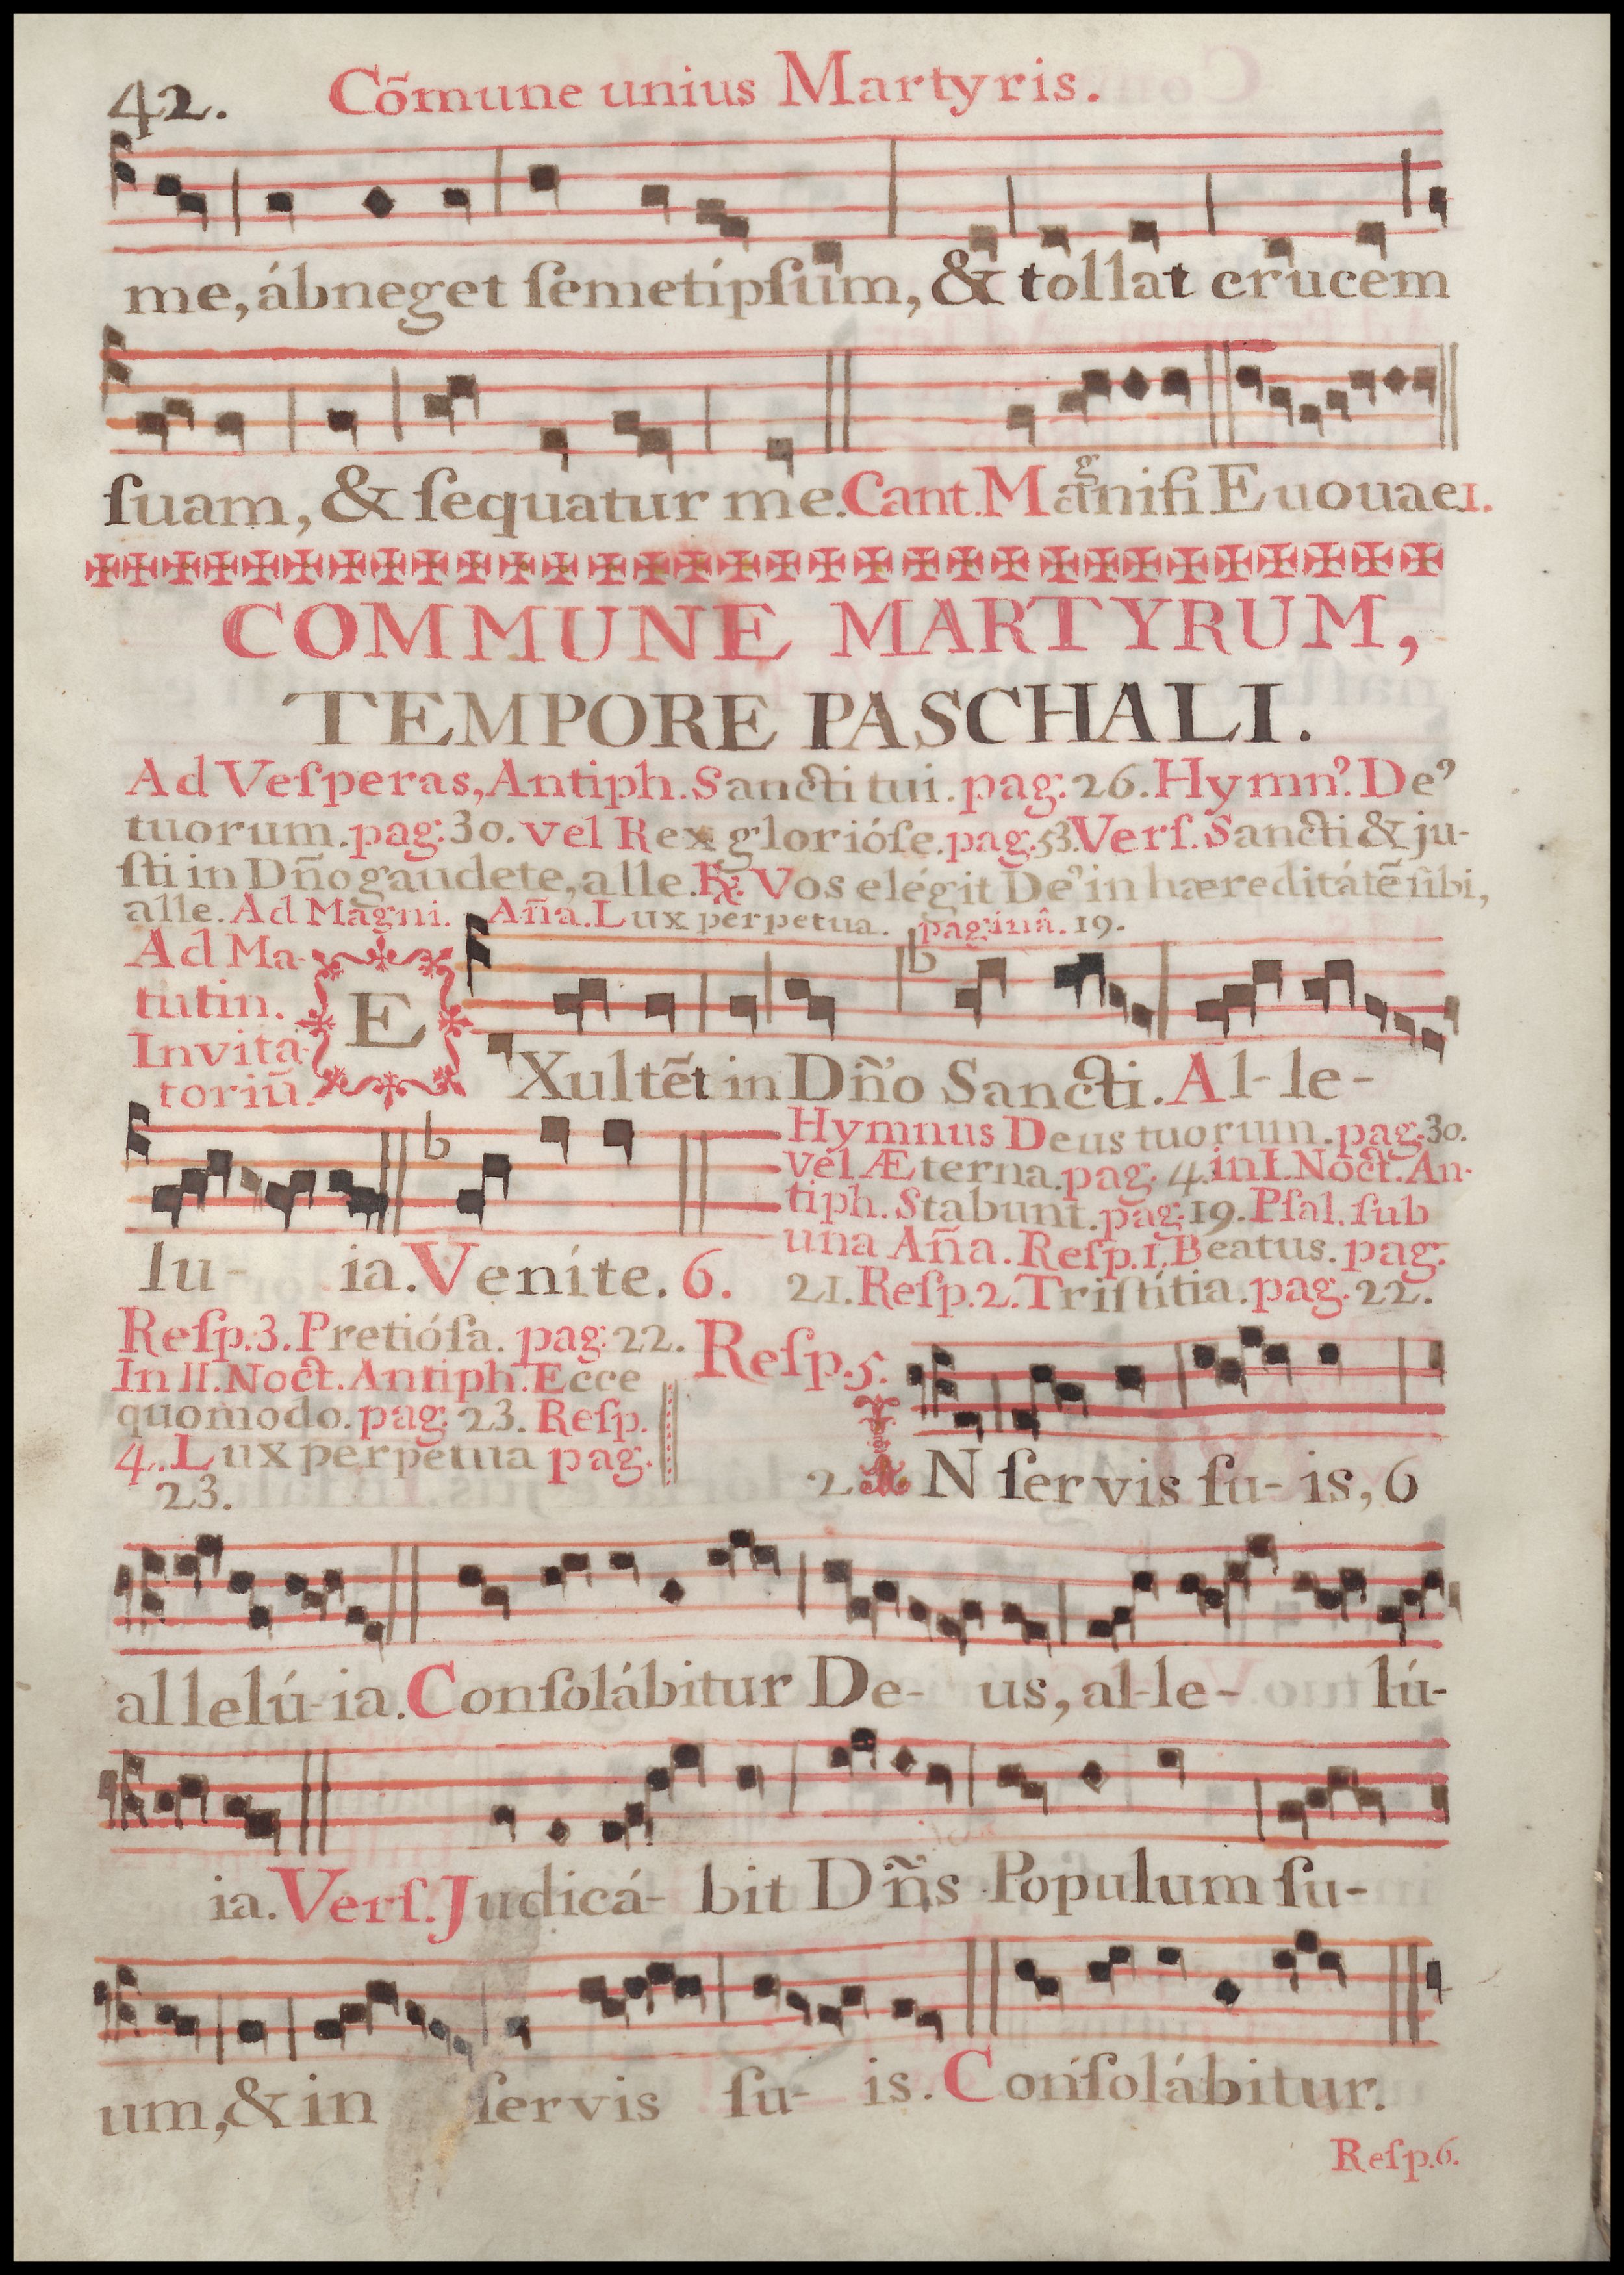 42. Cõmune unius Martyris.
me, ábneget ſemetípſum, & tollat crucem
ſuam, & ſequatur me. Cant. Magnifi Euouae 1.
COMMUNE MARTYRUM,
TEMPORE PASCHALI.
Ad Veſperas, Antiph. Sancti tui. pag. 26. Hymn⁹. De⁹
tuorum. pag. 30. vel Rex glorióſe. pag. 53. Verſ. Sancti & ju-
ſti in Dño gaudete, alle. ℟. Vos elégit De⁹ in hæreditátẽ ſibi,
alle. Ad Magni. Aña. Lux perpetua. paginâ. 19.
Ad Ma-
tutin.
Invita-
toriũ.
EXultẽt in Dño Sancti. Al-le-
lu- ia. Veníte. 6.
Hymnus Deus tuorum. pag. 30.
vel Æterna. pag. 4. in I. Noct. An-
tiph. Stabunt. pag. 19. Pſal. ſub
una Aña. Reſp. 1. Beatus. pag.
21. Reſp. 2. Triſtítia. pag. 22.
Reſp. 3. Pretióſa. pag. 22.
In II. Noct. Antiph. Ecce
quomodo. pag. 23. Reſp.
4. Lux perpetua pag.
23.
Reſp. 5.
2. IN ſervis ſu- is, 6
allelú-ia. Conſolábitur De- us, al-le- lú-
ia. Verſ. Judicá- bit Dñs Populum ſu-
um, & in ſervis ſu- is. Conſolábitur.
Reſp. 6.